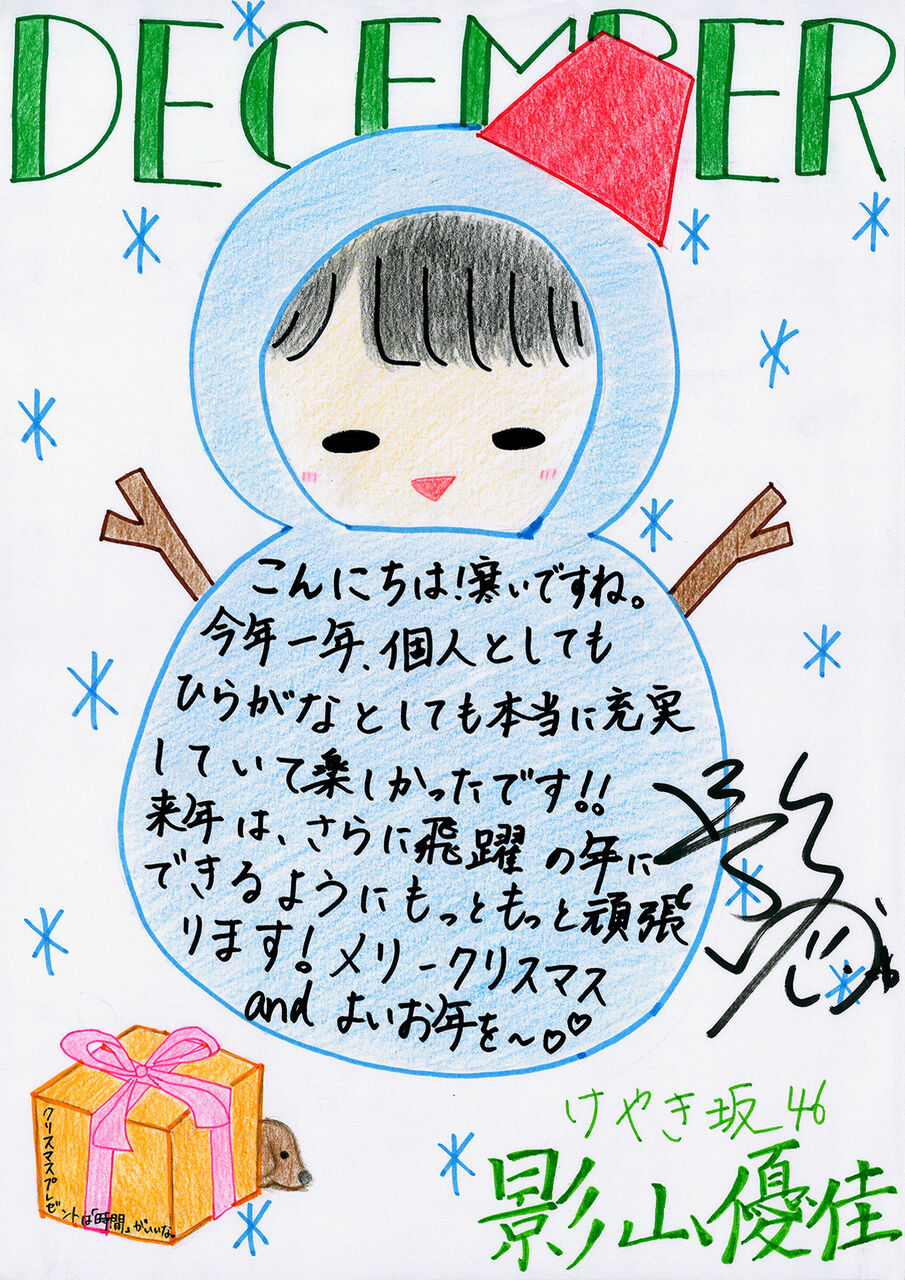 DECEMBER
こんにちは!寒いですね。
今年一年、個人としても
ひらがなとしても本当に充実
していて楽しかったです!!
来年は、さらに飛躍の年に
できるようにもっともっと頑張
ります!メリークリスマス
and よいお年を～♡♡
クリスマスプレゼ
ントは「時間」がいいな。
けやき坂46
影山優佳